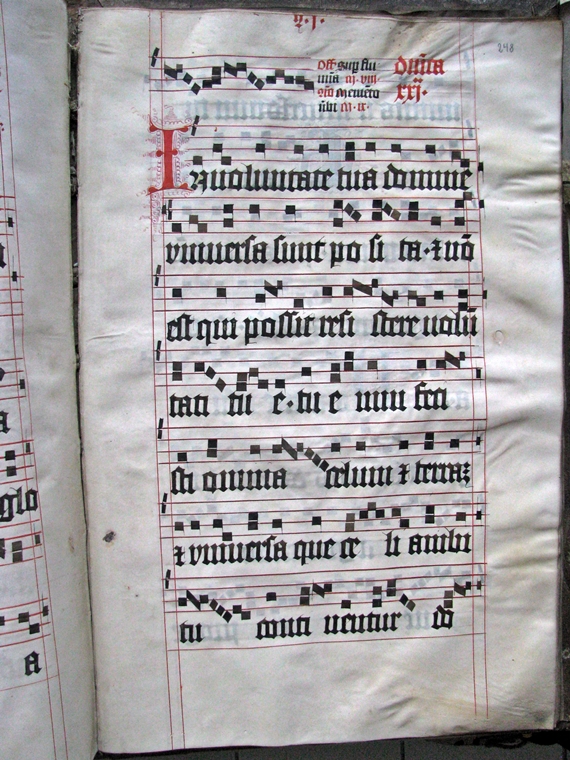 248
Off. Sup flu
mina
Dn̄ica
xxj.
In uoluntate tua domine
vniuersa sunt po si ta · ⁊ nō
est qui possit resi stere uolū
tati tu e · tu e nim feci
sti omnia celum ⁊ terraꝫ
⁊ vniuersa que ce li ambi
tu conti nentur dō
glo
a
a